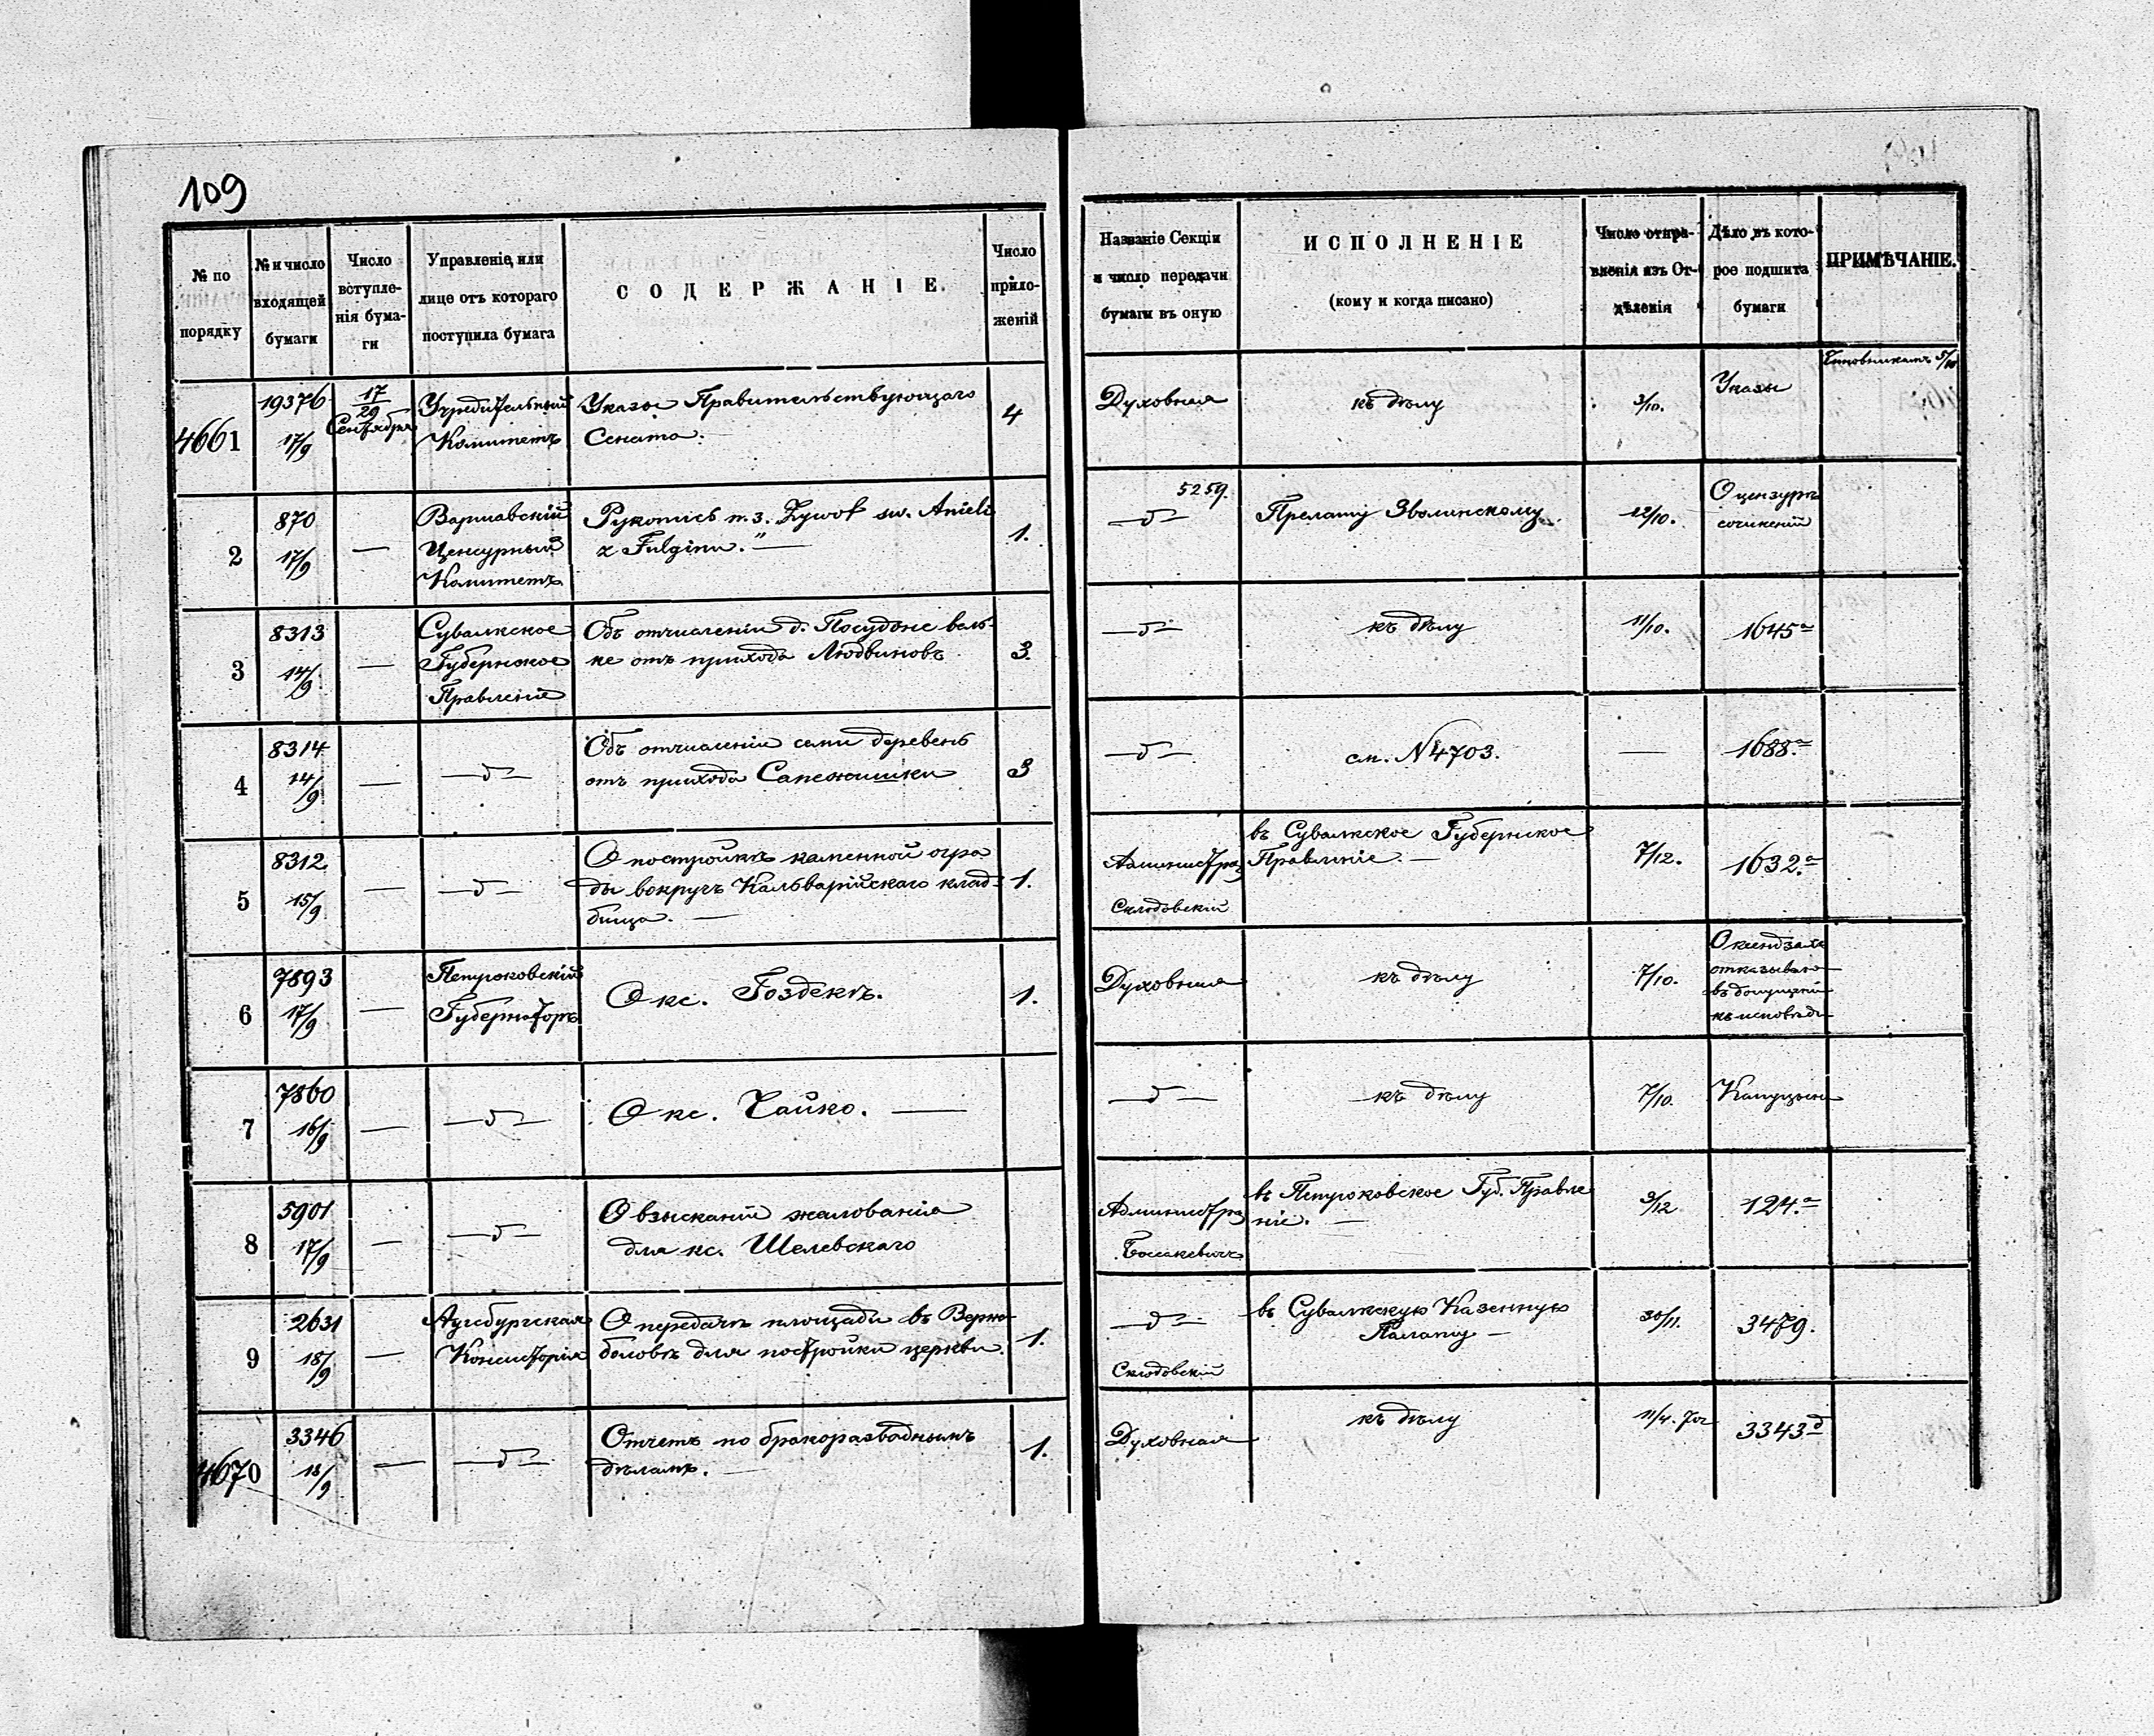 109
№ по порядку
№ и число входящей бумаги
Число вступле-нія бума-ги
Управленіе, или лице отъ котораго поступила бумага
СОДЕРЖАНІЕ.
Число прило-женій
Названіе Секціи и число передачи бумаги въ оную
ИСПОЛНЕНІЕ
(кому и когда писано)
Число отпра-вленія изъ От-дѣленія
Дѣло въ кото-рое подшита бумаги
ПРИМѢЧАНІЕ.
4661
19376
17/9
17/29 Сентября
Учредительный
Комитетъ
Указы Правительствующаго
Сената.
4
Духовная
къ дѣлу
3/10.
Указы
5/10
2
870
17/9
—
Варшавскій
Ценсурный
Комитетъ
Рукопись п. з. Żywot św. Anieli
z Fulginu." —
1.
5259.
—д—
Прелату Зволинскому.
22/10.
О цензурѣ
сочиненій
3
8313
14/9
—
Сувалкское
Губернское
Правленіе
Объ отчисленіи д. Посудоне вель-
ке отъ прихода Людвиновъ
3.
—д—
къ дѣлу
11/10.
1645а
4
8314
14/9
—
—д—
Объ отчисленіи семи деревень
отъ прихода Сапежишки
3
—д—
см. №4703.
—
1688.а
5
8312
15/9
—
—д—
О постройкѣ каменной огра
ды вокругъ Кальварійскаго клад-
бища. —
1.
Администра
Склодовскій
въ Сувалкское Губернское
Правленіе. —
7/12.
1632.а
6
7893
17/9
—
Петроковскій
Губернаторъ
О кс. Гоздекѣ.
1.
Духовная
къ дѣлу
7/10.
О ксендзахъ
отказываю
въ допущеніи
къ исповѣди
7
7860
16/9
—
—д—
О кс. Чайко. —
—д—
къ дѣлу
7/10.
Капуцыны
8
5901
17/9
—
—д—
О взысканіи жалованія
для кс. Шелевскаго
Администра
въ Петроковское Губ. Правле
ніе. —
9/12
124.а
9
2631
18/9
—
Аугсбургская
Консисторія
О передачѣ площади въ Вержбо-
боловѣ для постройки церкви.
1.
—д—
Склодовскій
въ Сувалкскую Казенную
Палату —
30/11.
3479.
4670
3346
18/9
—
—д—
Отчетъ по бракоразводнымъ
дѣламъ. —
1.
Духовная
къ дѣлу
11/4.
3343д